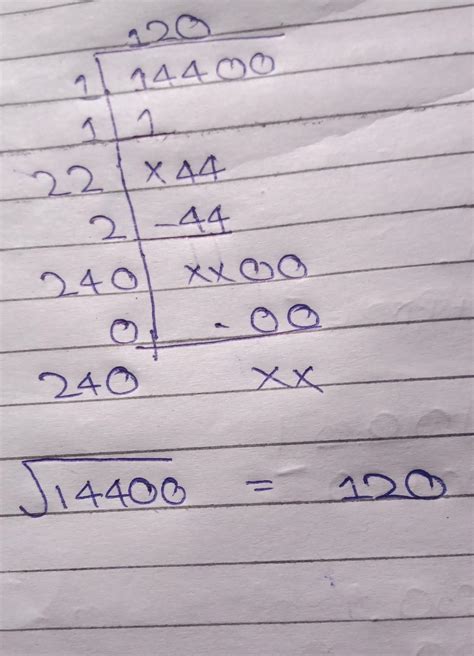 120
1 14400
1 1
22 ×44
2 -44
240 ××00
0 -00
240 ××
√14400 = 120